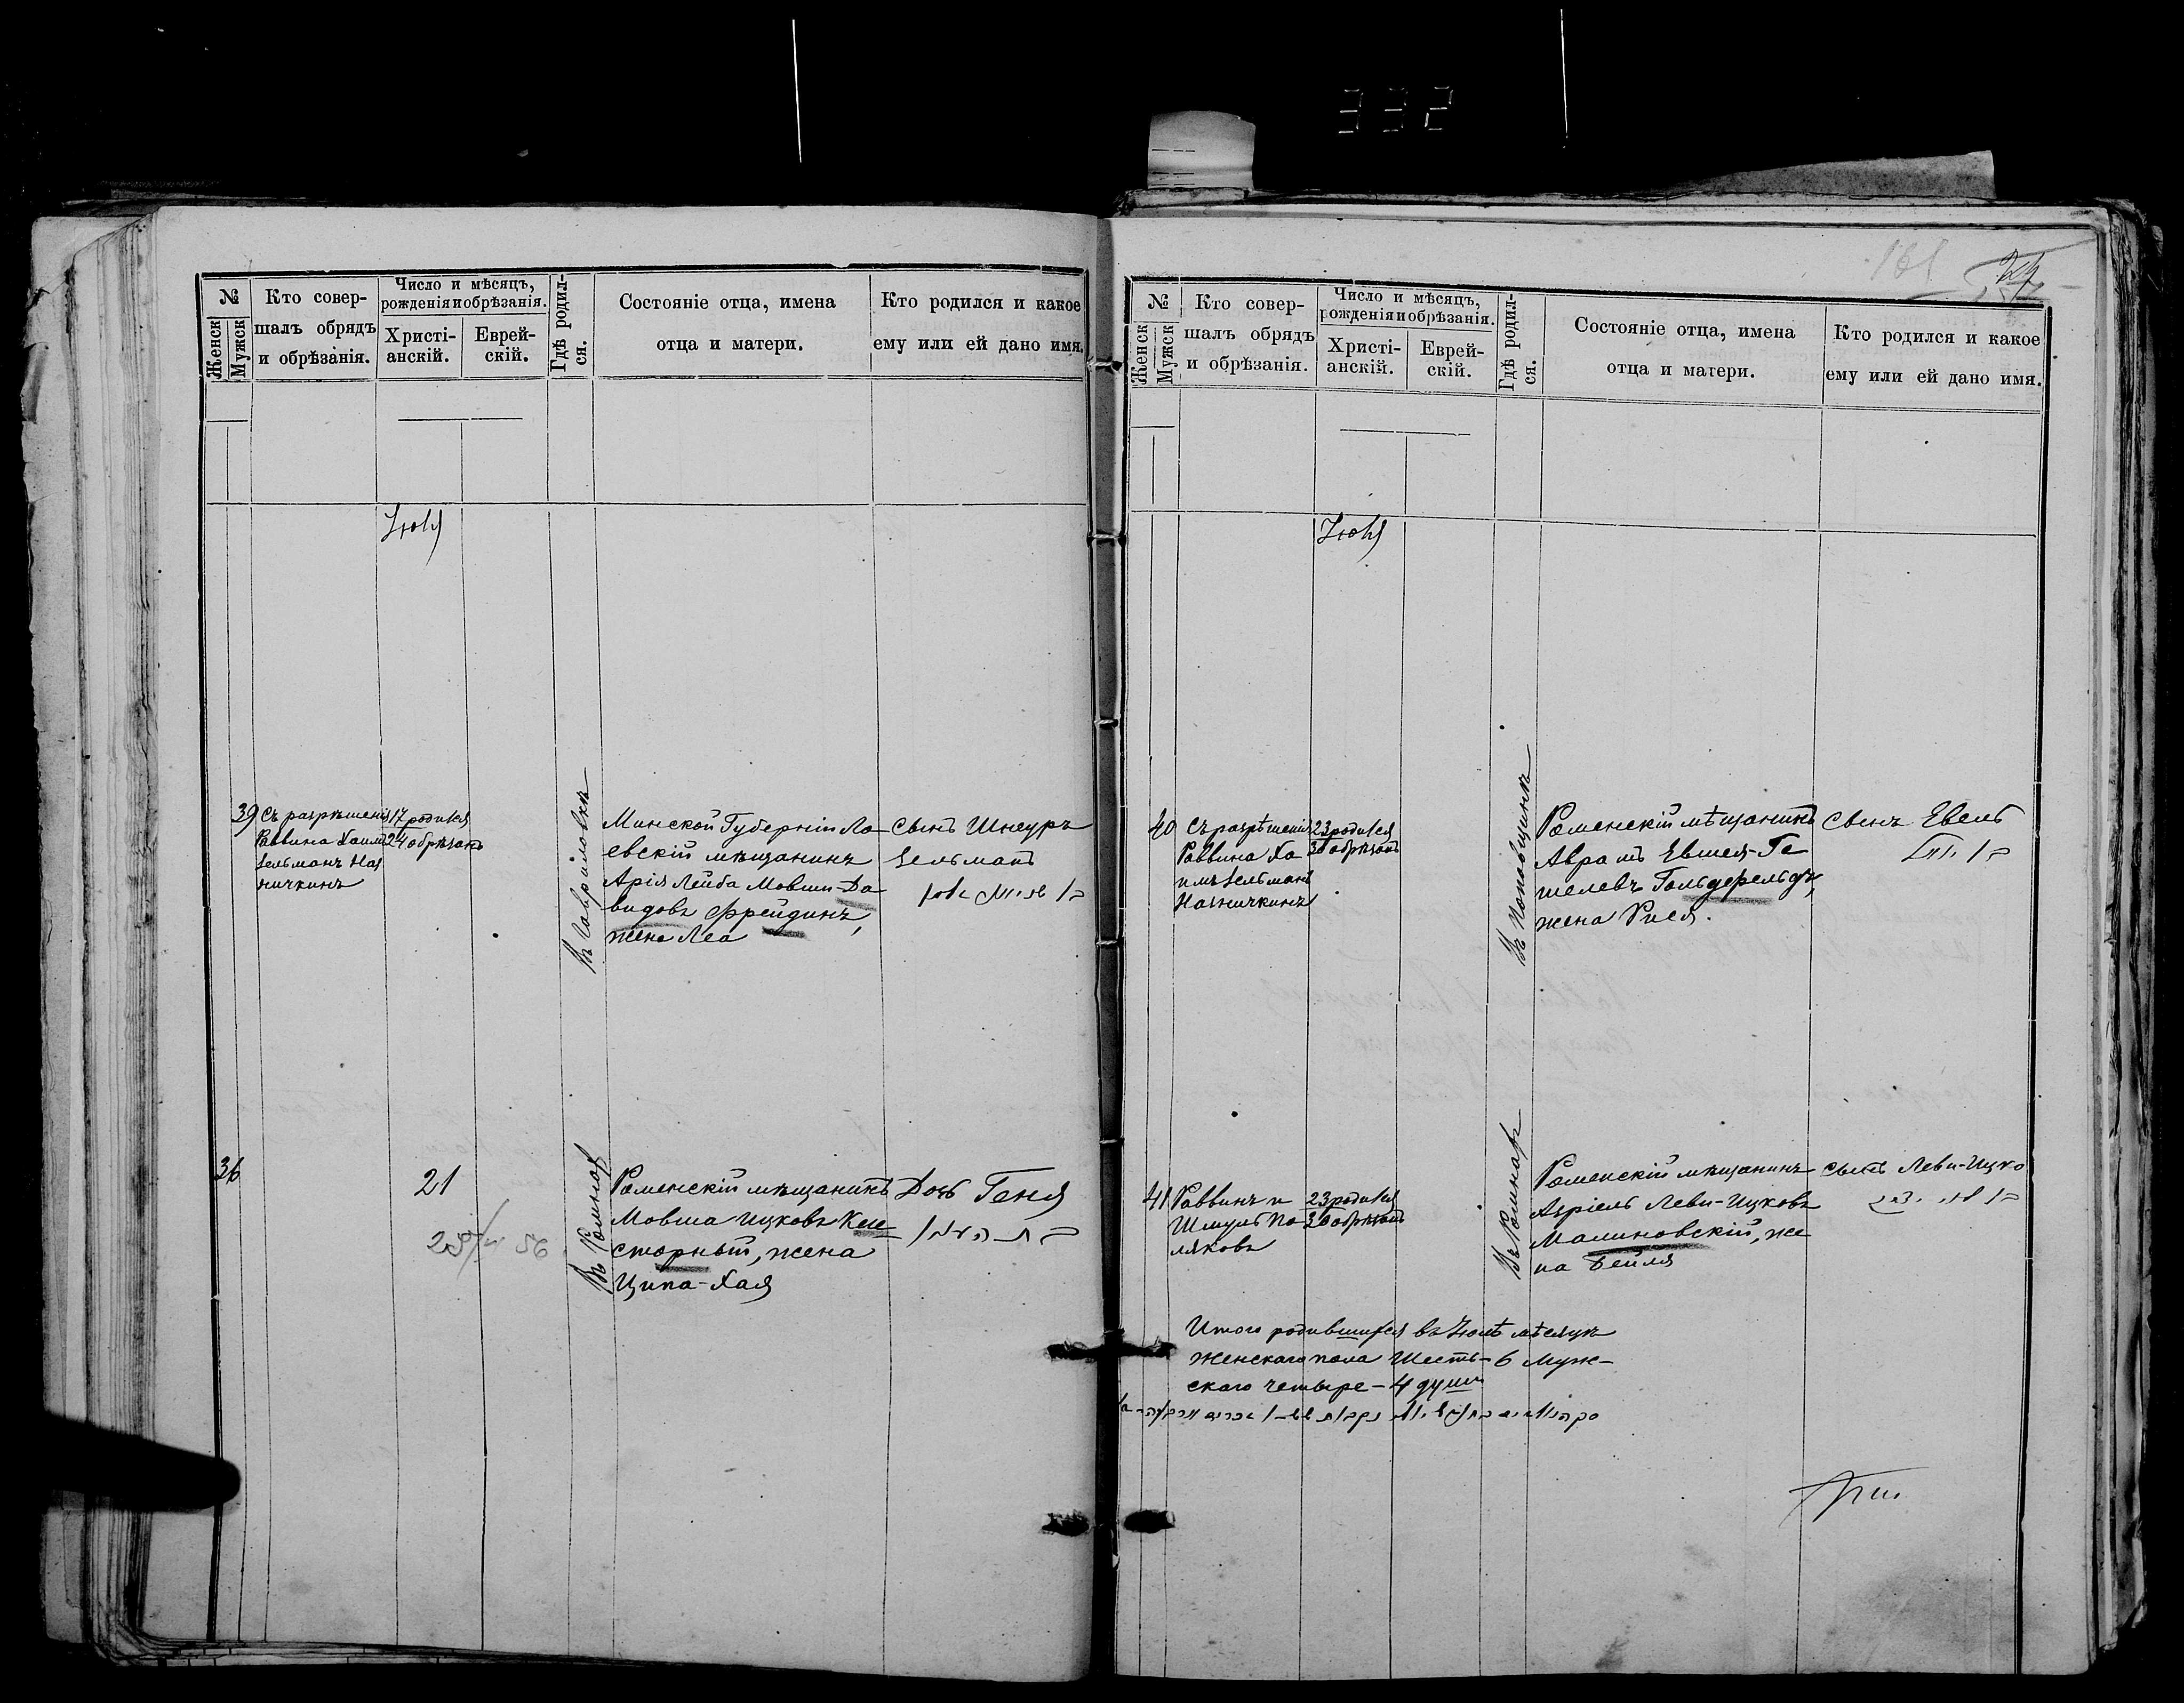 332
№
Женск
Мужск
Кто совер-
шалъ обрядъ
и обрѣзанія.
Число и мѣсяцъ,
рожденія и обрѣзанія.
Христі-
анскій.
Еврей-
скій.
Гдѣ родил-
ся.
Состояніе отца, имена
отца и матери.
Кто родился и какое
ему или ей дано имя.
Іюля
39
Съ разрѣшенія
Раввина Хаимъ
Зельманъ Наз
ничкинъ
17 родился
24 обрѣзанъ
Въ Гавриловкѣ
Минской Губерніи Ло-
евскій мѣщанинъ
Арія Лейба Мовши-Да
видовъ Фрейдинъ,
жена Леа
Сынъ Шнеуръ
Зельманъ
36
21
Въ Ромнах
Роменскій мѣщанинъ
Мовша Ицковъ
жена
Ципа-Хая
Дочь Геня
№
Женск
Мужск
Кто совер-
шалъ обрядъ
и обрѣзанія.
Число и мѣсяцъ,
рожденія и обрѣзанія.
Христі-
анскій.
Еврей-
скій.
Гдѣ родил-
ся.
Состояніе отца, имена
отца и матери.
Кто родился и какое
ему или ей дано имя.
Іюля
40
Съ разрѣшенія
Раввина Ха
имъ Зельманъ
Назничкинъ
23 родился
30 обрѣзанъ
Въ Поповщинѣ
Роменскій мѣщанинъ
Аврамъ Евшея-Ге
шелевъ Гольдфельдъ,
жена Рися.
Сынъ Евель
41
Раввинъ и
Шмуль По
ляковъ
23 родился
30 обрѣзанъ
Въ Ромнах
Роменскій мѣщанинъ
Азріель Леви-Ицковъ
Малиновскій, же
на Бейля
Сынъ Леви-Ицко
Итого родившихся въ Іюлѣ мѣсяцѣ
женскаго пола Шесть-6 Муж-
скаго четыре-4 души